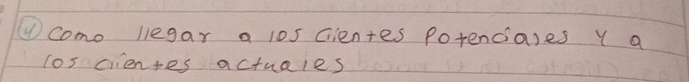 ④ Como llegar a los Cientes Potenciales y a
los cientes actuales